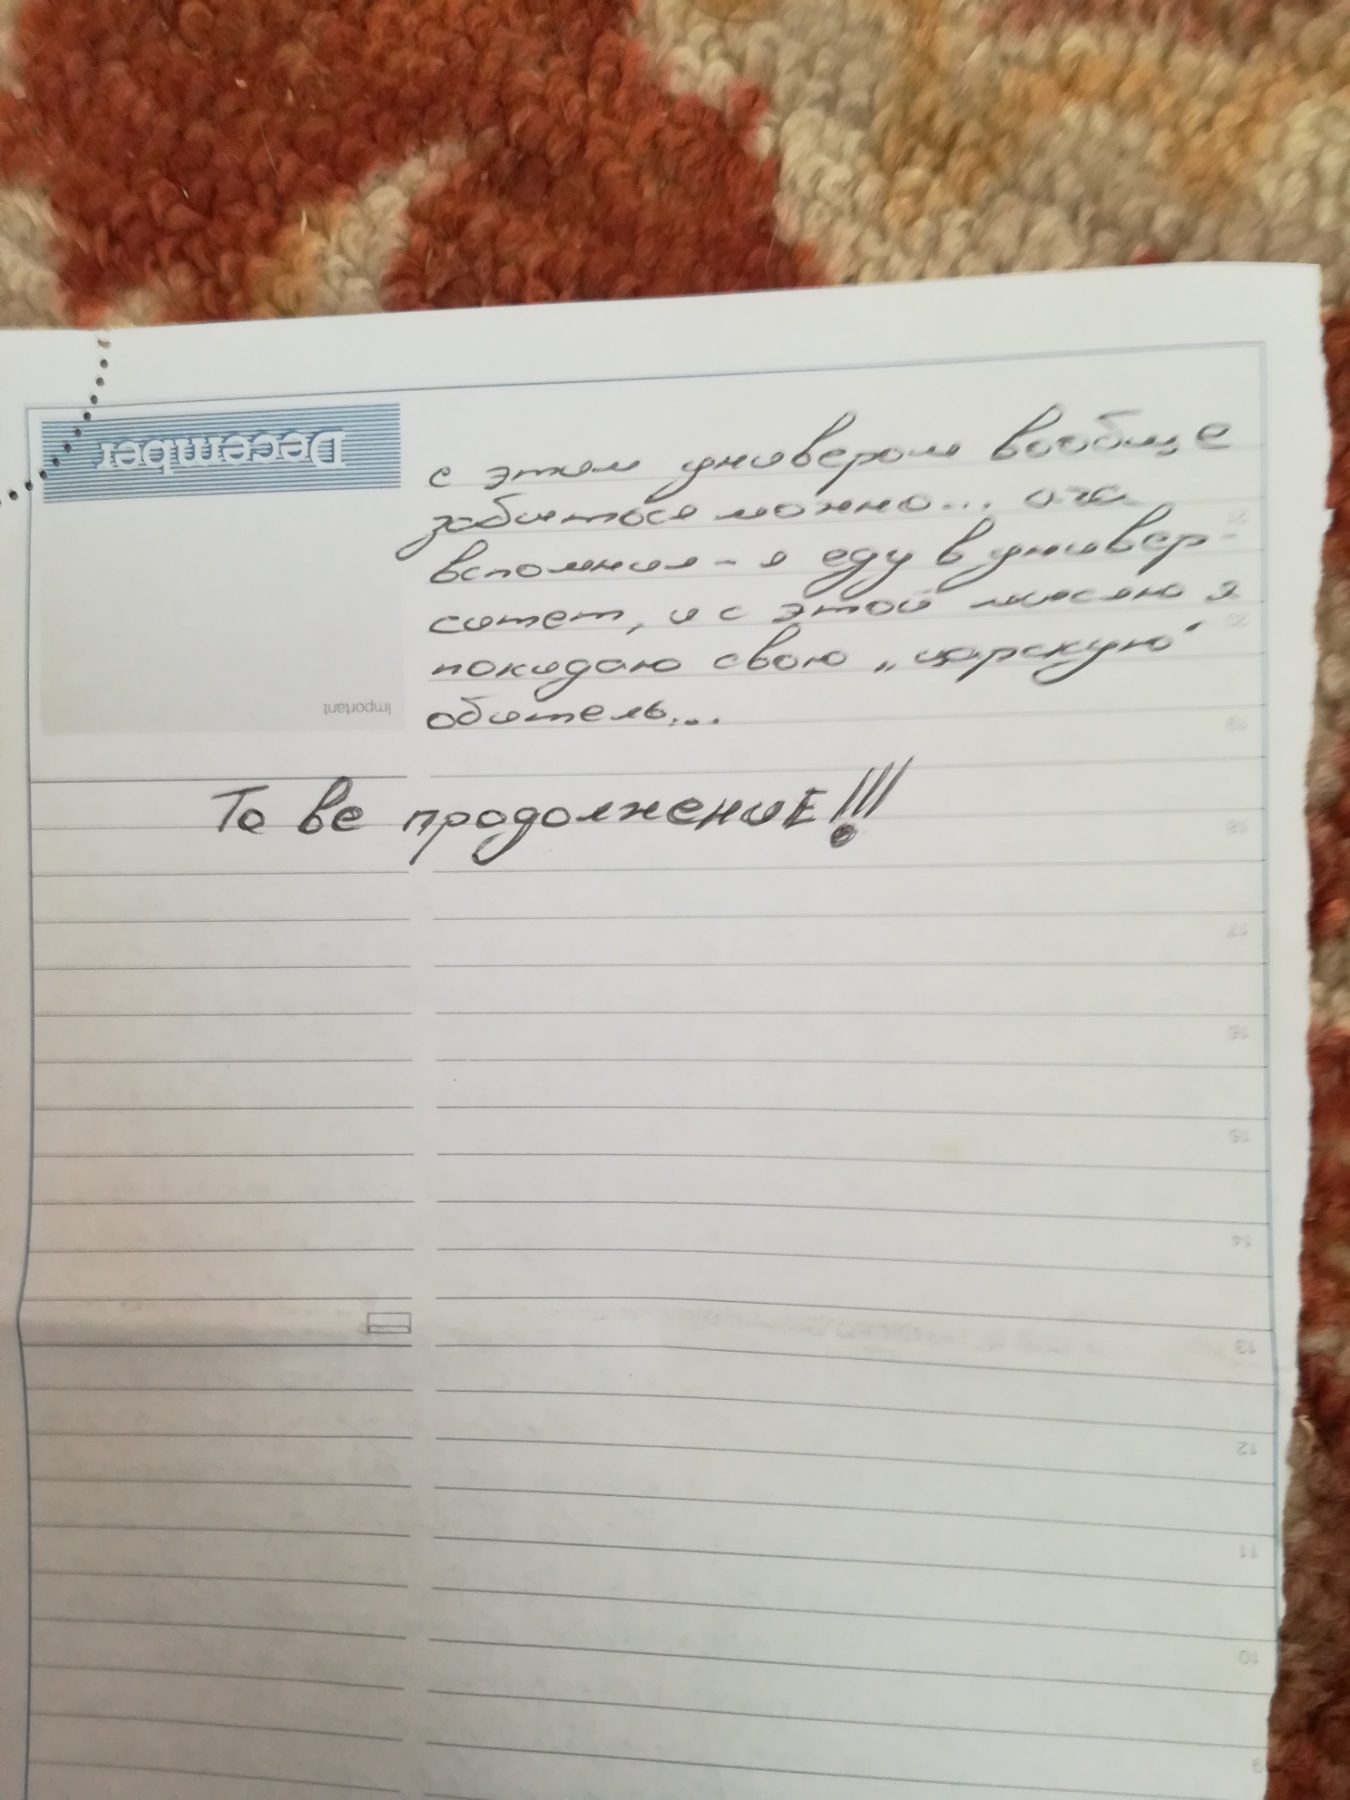 с этим универом вообще
забыться можно... ага
вспомнил - я еду в универ-
ситет, и с этой мыслью я
покидаю свою „царскую"
обитель...
То ве продолжениЕ!!!
December
Important
20
19
18
17
16
15
14
13
12
11
10